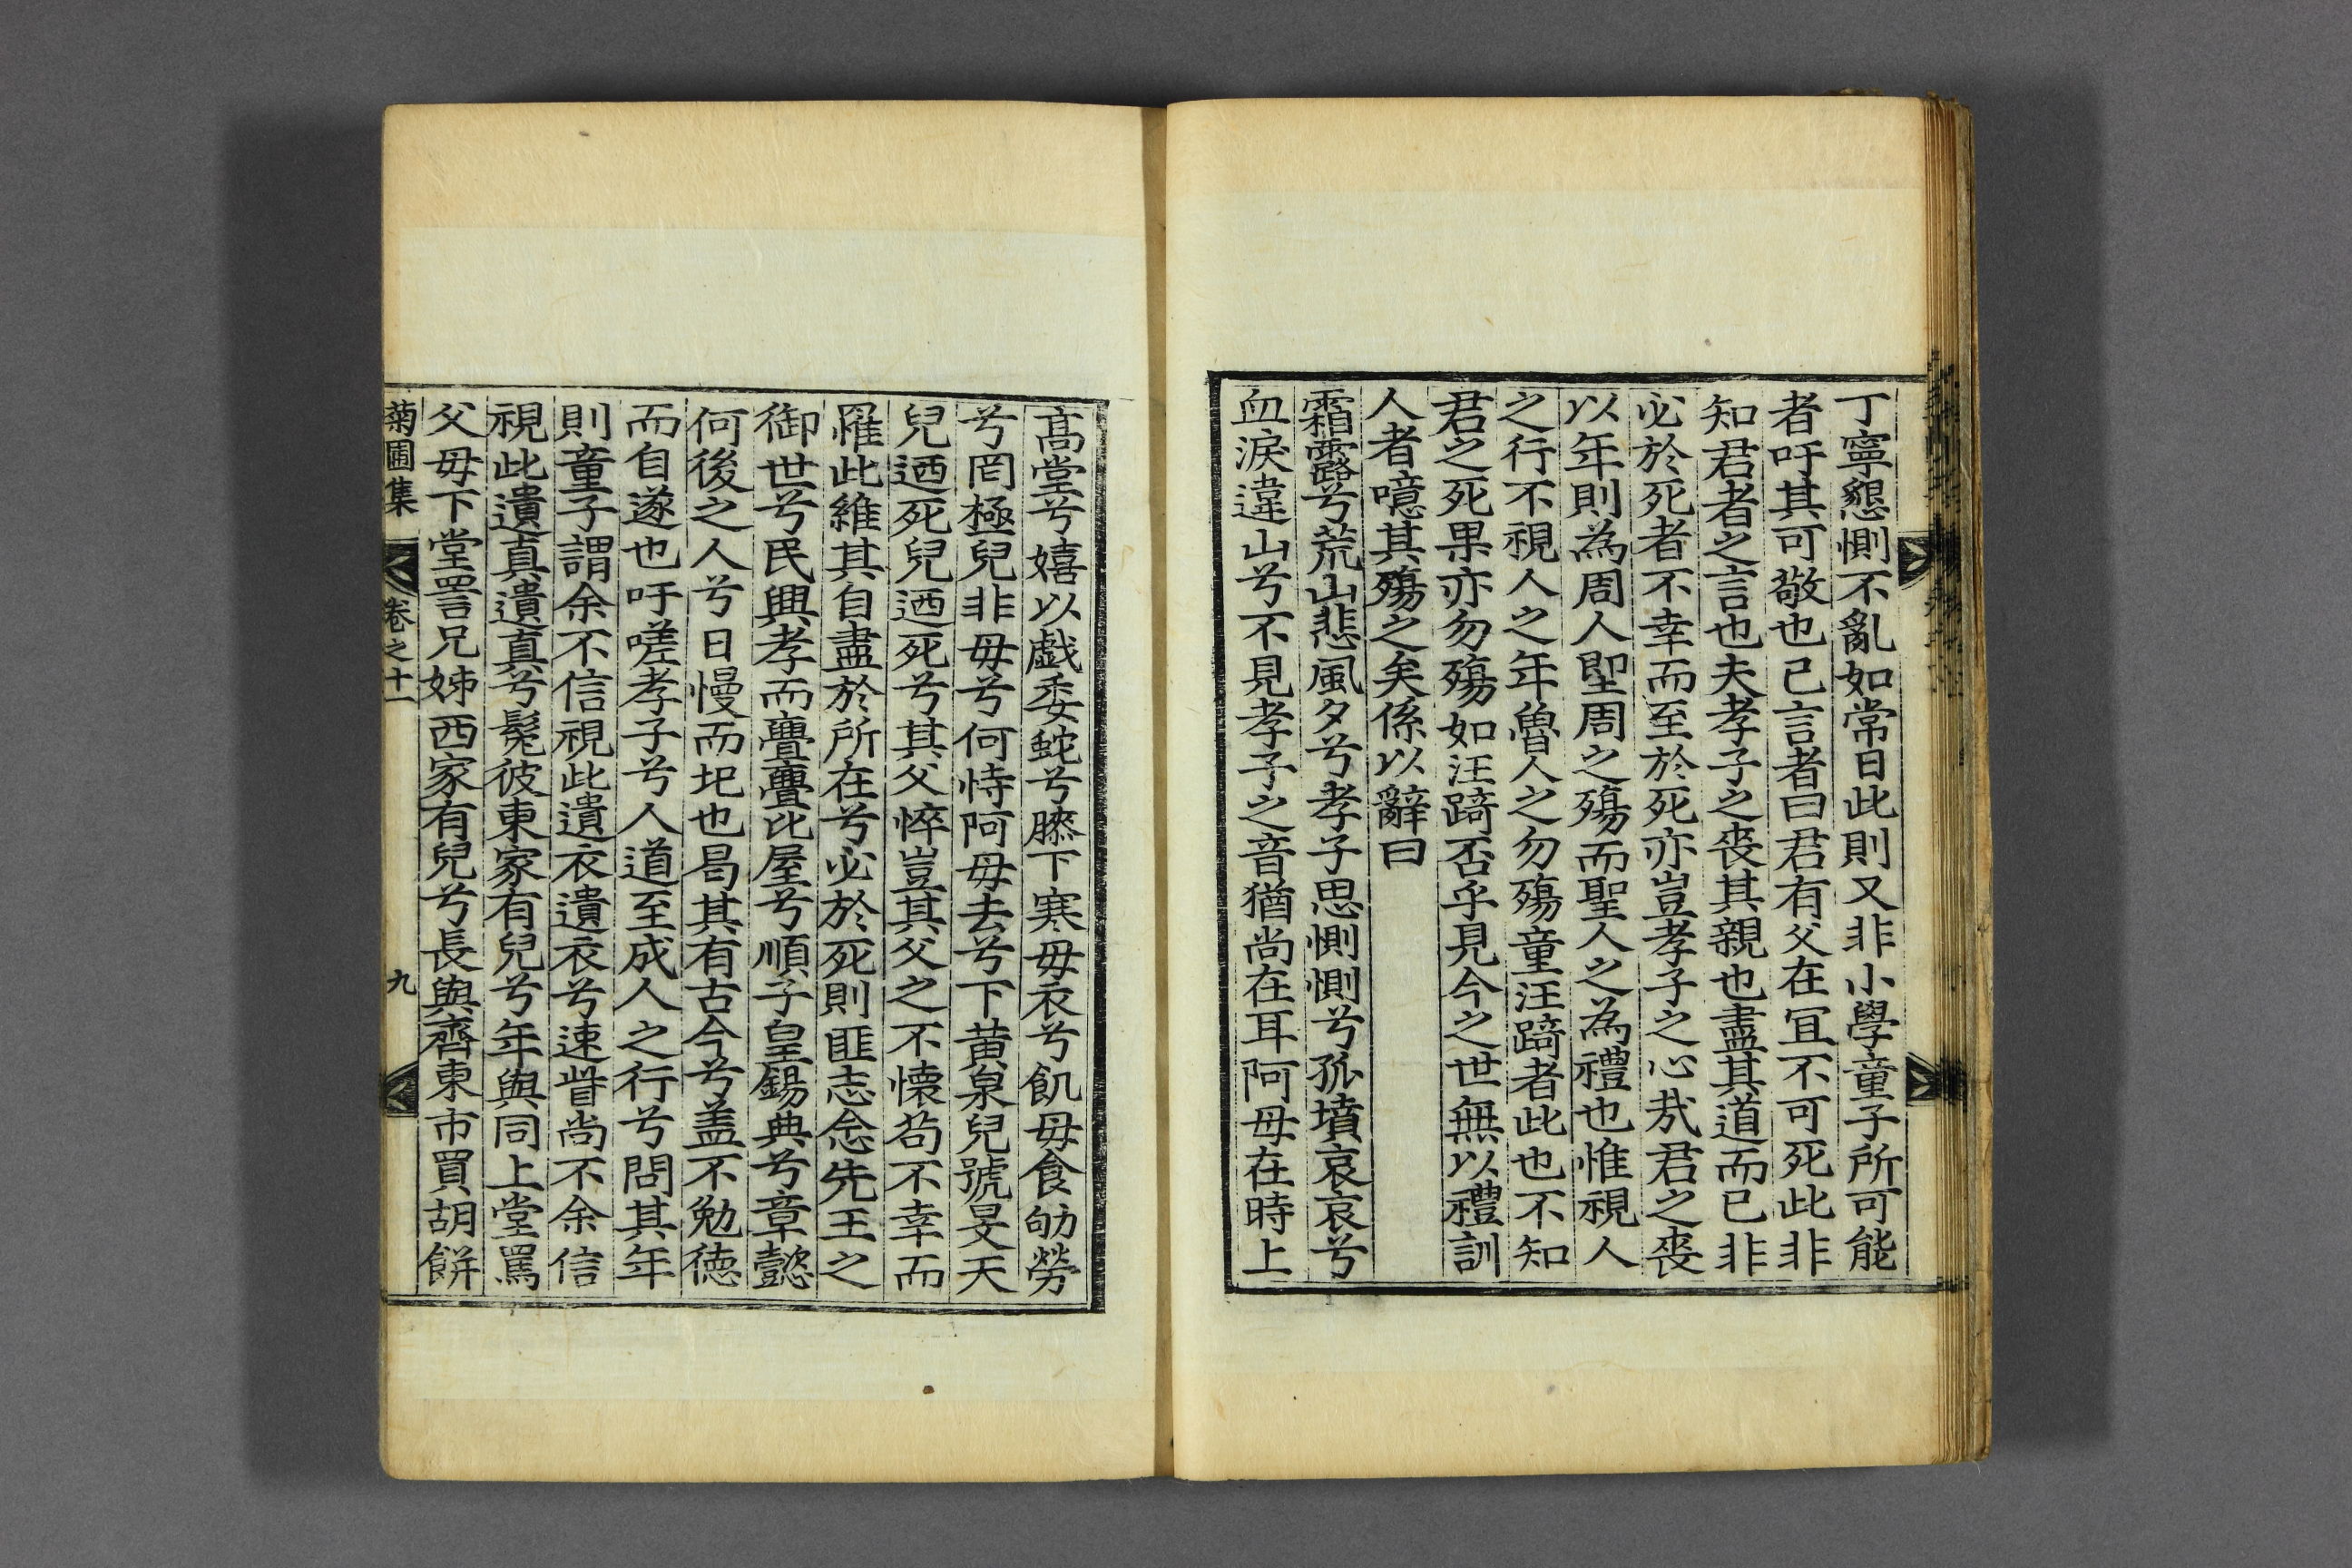 丁寧懇惻不亂如常日此則又非小學童子所可能
者吁其可敬也已言者曰君有父在冝不可死此非
知君者之言也夫孝子之喪其親也盡其道而已非
必於死者不幸而至於死亦豈孝子之心㢤君之喪
以年則為周人聖周之殤而聖人之為禮也惟視人
之行不視人之年魯人之勿殤童汪踦者此也不知
君之死果亦勿殤如汪踦否乎見今之世無以禮訓
人者噫其殤之矣係以辭曰
霜露兮荒山悲風夕兮孝子思惻惻兮孤墳哀哀兮
血淚違山兮不見孝子之音猶尚在耳阿母在時上
高堂兮嬉以戱委蛇兮膝下寒毋衣兮飢毋食劬勞
兮罔極兒非毋兮何恃阿毋去兮下黄泉兒號旻天
兒迺死兒迺死兮其父悴豈其父之不懐苟不幸而
罹此維其自盡於所在兮必於死則匪志念先王之
御世兮民興孝而亹亹比屋兮順子皇錫典兮章懿
何後之人兮日慢而圯也曷其有古今兮盖不勉徳
而自遂也吁嗟孝子兮人道至成人之行兮問其年
則童子謂余不信視此遺衣遺衣兮速眥尚不余信
視此遺真遺真兮髧彼東家有兒兮年與同上堂罵
父毋下堂詈兄姊西家有兒兮長與齊東市買胡餅
菊圃集 卷之十一 九